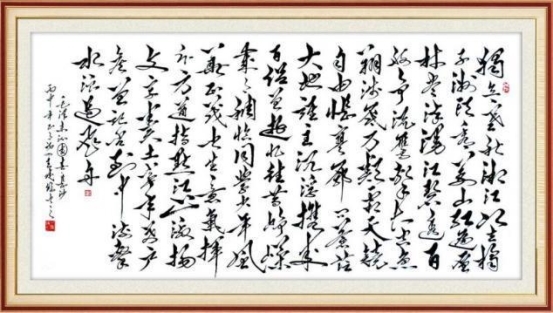 独立寒秋湘江北去橘
子洲头看万山红遍层
林尽染漫江碧透百
舸争流鹰击长空鱼
翔浅底万类霜天竞
自由怅寥廓问苍茫
大地谁主沉浮携来
百侣曾游忆往昔峥嵘
岁月稠恰同学少年风
华正茂书生意气挥
斥方遒指点江山激扬
文字粪土当年万户
侯曾记否到中流击
水浪遏飞舟
毛泽东沁园春长沙